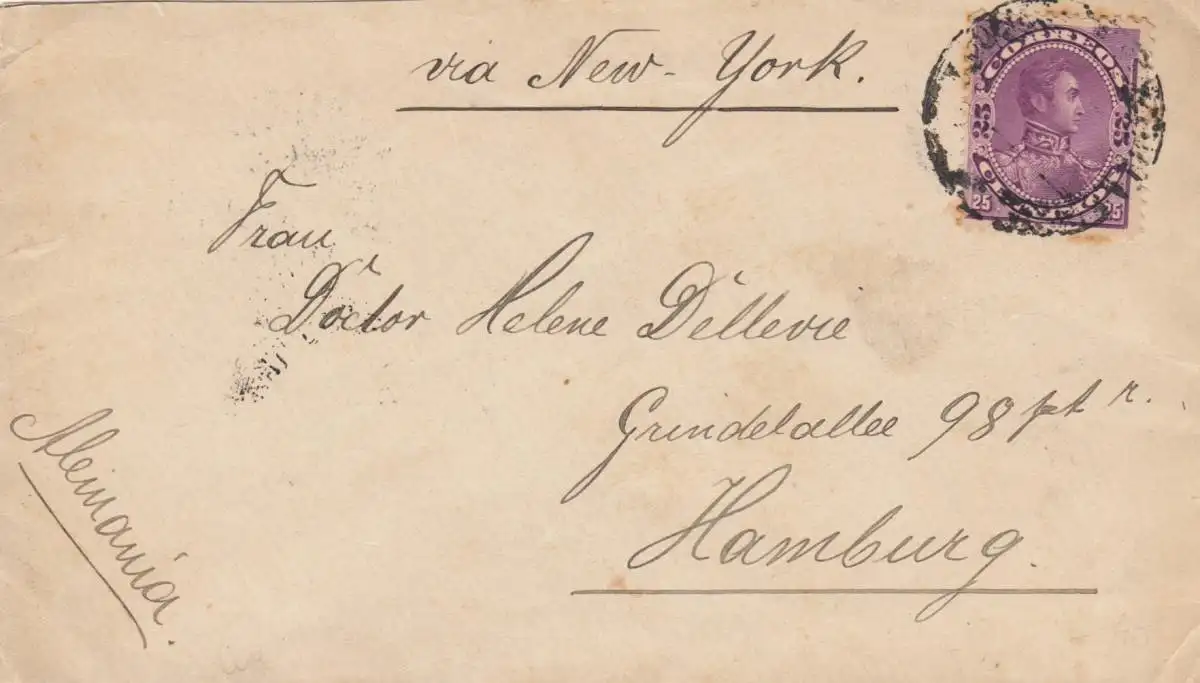 via New-York.
CORREOS
25 25
CENTIMOS
25 25
Frau
Doctor Helene Dellevie
Grindelallee 98 pt r.
Hamburg.
Alemania.